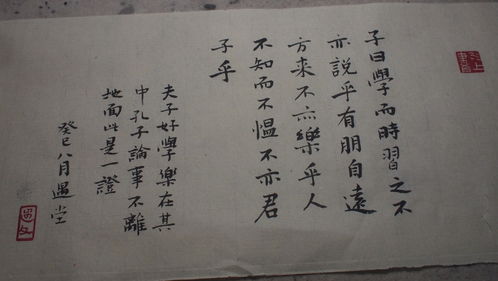 子曰學而時習之不
亦說乎有朋自遠
方来不亦樂乎人
不知而不愠不亦君
子乎
夫子好學樂在其
中孔子論事不離
地面此是一證
癸巳八月遇堂